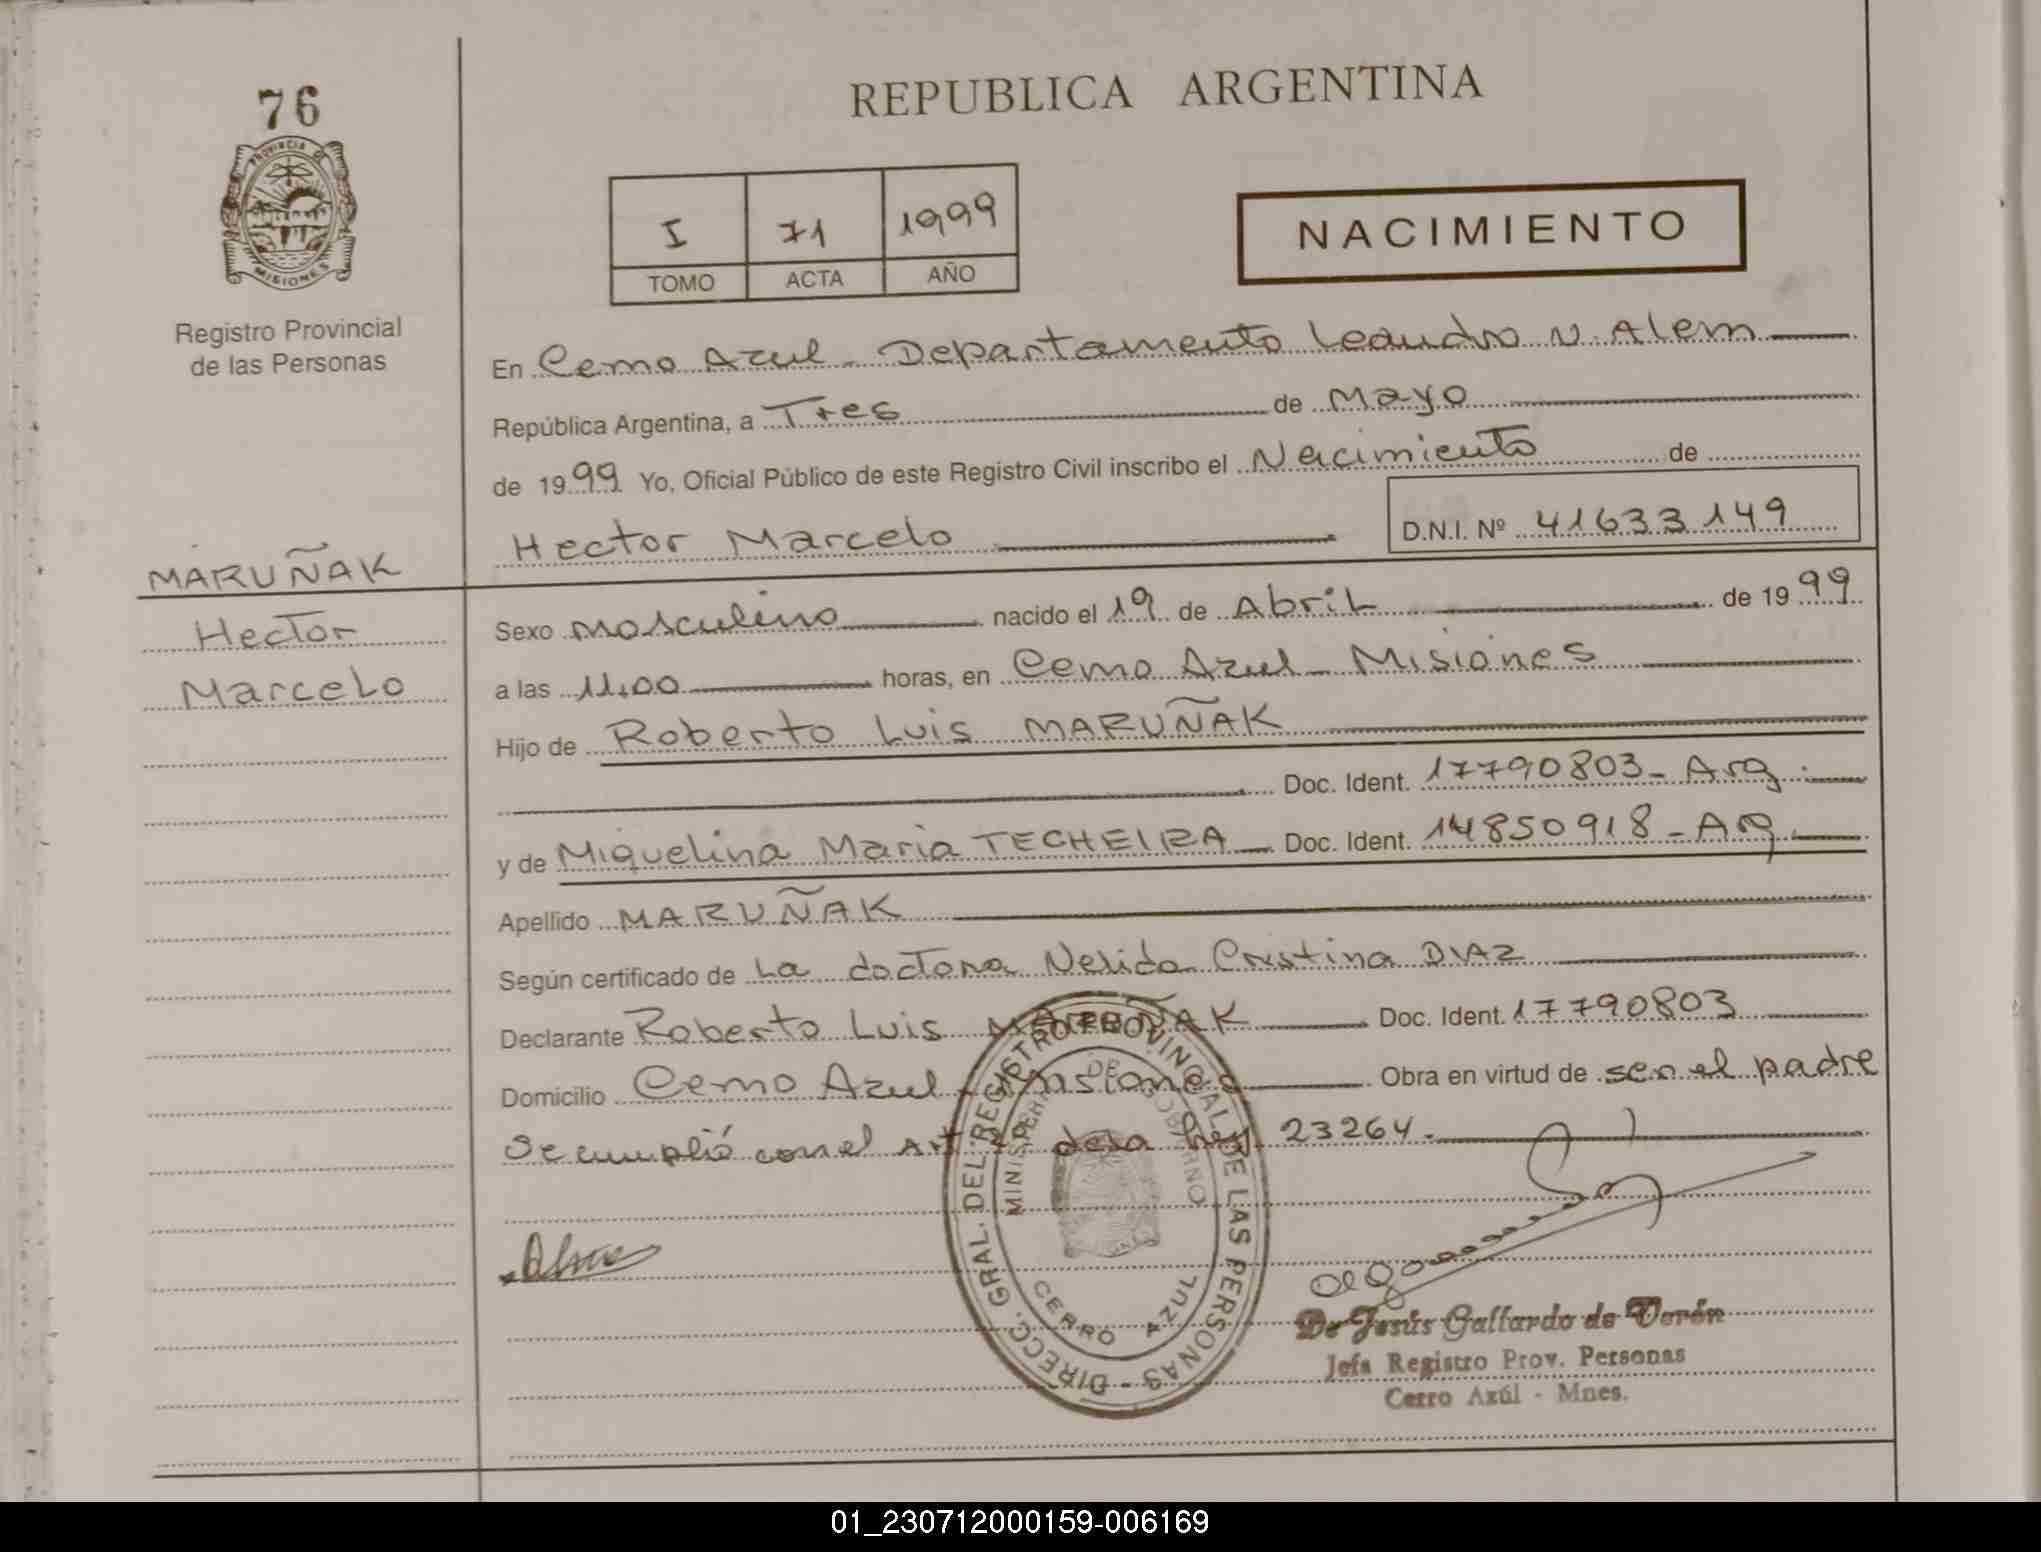 76
PROVINCIA DE
MISIONES
Registro Provincial
de las Personas
MARUÑAK
Hector
Marcelo
REPUBLICA ARGENTINA
I 71 1999
TOMO ACTA AÑO
NACIMIENTO
En Cerro Azul - Departamento Leandro N. Alem
República Argentina, a Tres de Mayo
de 1999 Yo, Oficial Público de este Registro Civil inscribo el Nacimiento de
Hector Marcelo D.N.I. Nº 41633149
Sexo masculino nacido el 19 de Abril de 1999
a las 11.00 horas, en Cerro Azul - Misiones
Hijo de Roberto Luis MARUÑAK
Doc. Ident. 17790803 - Arg.
y de Miquelina Maria TECHEIRA Doc. Ident. 14850918 - Arg.
Apellido MARUÑAK
Según certificado de La doctora Nelida Cristina DIAZ
Declarante Roberto Luis MARUÑAK Doc. Ident. 17790803
Domicilio Cerro Azul - Misiones Obra en virtud de ser el padre
Se cumplió con el Art. 2º de la Ley 23264.
DIRECC. GRAL. DEL REGISTRO PROVINCIAL DE LAS PERSONAS -
MINISTERIO DE GOBIERNO
CERRO AZUL
De Jesús Gallardo de Verón
Jefa Registro Prov. Personas
Cerro Azúl - Mnes.
01_230712000159-006169